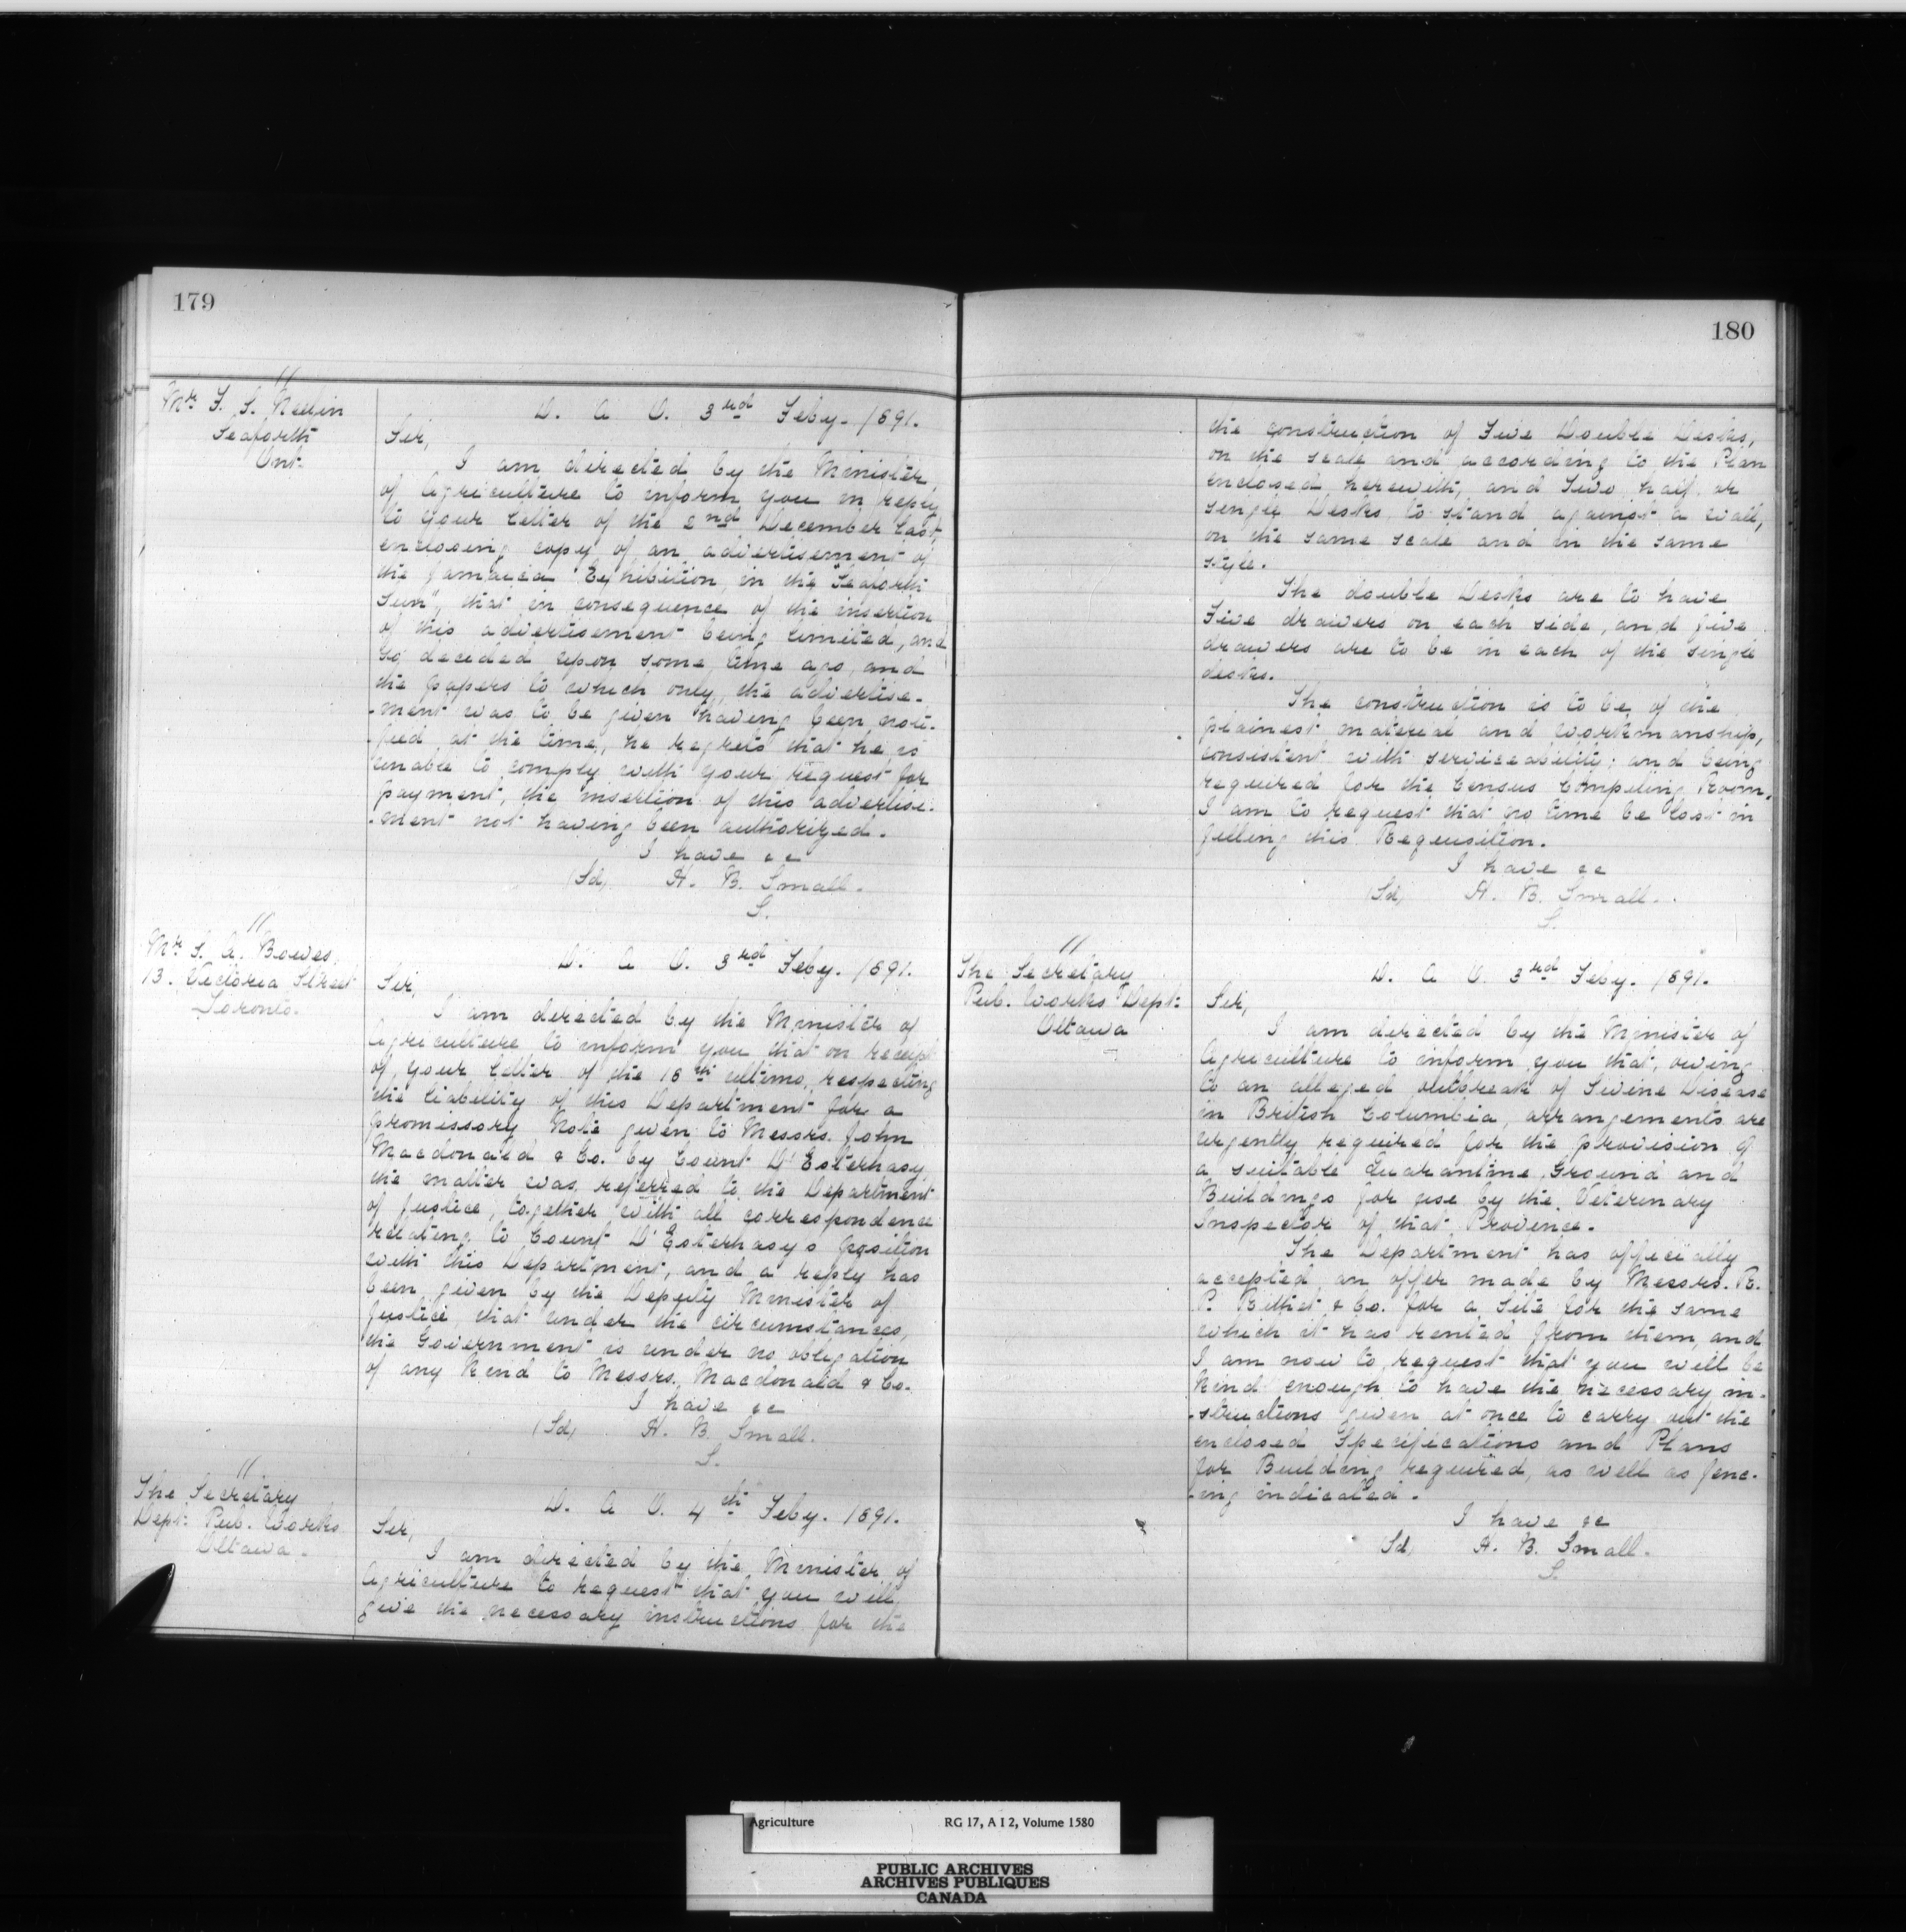 179
"
Mr. F. S. Neelin
Seaforth
Ont.
D. A. O. 3rd Feby. 1891.
Sir,
I am directed by the Minister
of Agriculture to inform you in reply
to your letter of the 2nd December last,
enclosing copy of an advertisement of
the Jamaica Exhibition, in the "Seaforth
Sun", that in consequence of the insertion
of this advertisement being limited, and
so decided upon some time ago, and
the papers to which only, the advertise-
-ment was to be given having been noti-
-fied at the time, he regrets that he is
unable to comply with your request for
payment, the insertion of this advertise-
-ment not having been authorized.
I have &c
(Sd, H. B. Small.
S.
"
Mr S. A. Bowes,
13. Victoria Street
Toronto.
D. A. O. 3rd Feby. 1891.
Sir,
I am directed by the Minister of
Agriculture to inform you that on receipt
of your letter of the 18th ultimo, respecting
the liability of this Department for a
promissory Note given to Messrs. John
Macdonald & Co. by Count D'Esterhasy
the matter was referred to the Department
of Justice, together with all correspondence
relating to Count D'Esterhasy's position
with this Department, and a reply has
been given by the Deputy Minister of
Justice that under the circumstances,
the Government is under no obligation
of any Kind to Messrs. Macdonald & Co.
I have &c
(Sd, H. B. Small.
S.
"
The Secretary
Dept: Pub. Works
Ottawa.
D. A. O. 4th Feby. 1891.
Sir,
I am directed by the Minister of
Agriculture to request that you will
give the necessary instructions for the
180
the construction of Five Double Desks,
on the scale and according to the Plan
enclosed herewith, and Two half or
single Desks to stand against a wall,
on the same scale and in the same
style.
The double Desks are to have
Five drawers on each side, and five
drawers are to be in each of the single
desks.
The construction is to be of the
plainest material and workmanship,
consistent with serviceability; and being
required for the Census Compiling Room,
I am to request that no time be lost in
filling this Requisition.
I have &c
(Sd, H. B. Small.
S.
"
The Secretary
Pub. Works Dept:
Ottawa
D. A. O. 3rd Feby. 1891.
Sir,
I am directed by the Minister of
Agriculture to inform you that, owing
to an alleged outbreak of Swine Disease
in British Columbia, arrangements are
urgently required for the provision of
a suitable Quarantine Ground and
Buildings for use by the Veterinary
Inspector of that Province.
The Department has officially
accepted an offer made by Messrs. R.
P. Rithet & Co. for a site for the same
which it has rented from them, and
I am now to request that you will be
Kind enough to have the necessary in-
-structions given at once to carry out the
enclosed Specifications and Plans
for Building required, as well as fenc-
-ing indicated.
I have &c
Sd, H. B. Small.
S.
Agriculture RG 17, A I 2, Volume 1580
PUBLIC ARCHIVES
ARCHIVES PUBLIQUES
CANADA